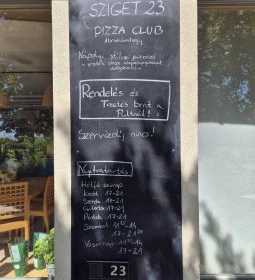 SZIGET 23
PIZZA CLUB
Nápolyi stílusú pizzázó
Rendelés és
fizetés bent a
Pultnál!
Szervízdíj nincs!
Nyitvatartás
Hétfő: szünnap
Kedd: 17-21
Szerda: 17-21
Csütörtök: 17-21
Péntek: 17-21
Szombat: 11³⁰-14
17-21³⁰
Vasárnap: 11³⁰-14
17-21
23